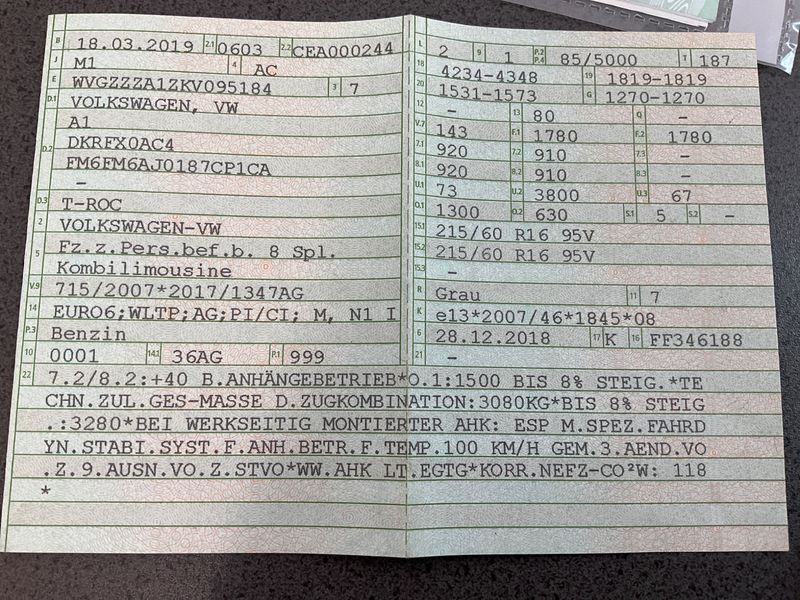 B 18.03.2019 2.1 0603 2.2 CEA000244
J M1 4 AC
E WVGZZZA1ZKV095184 3 7
D.1 VOLKSWAGEN, VW
A1
D.2 DKRFX0AC4
FM6FM6AJ0187CP1CA
–
D.3 T-ROC
2 VOLKSWAGEN-VW
5 Fz.z.Pers.bef.b. 8 Spl.
Kombilimousine
V.9 715/2007*2017/1347AG
14 EURO6;WLTP;AG;PI/CI; M, N1 I
P.3 Benzin
10 0001 14.1 36AG P.1 999
L 2 9 1 P.2 P.4 85/5000 T 187
18 4234-4348 19 1819-1819
20 1531-1573 G 1270-1270
12 – 13 80 Q –
V.7 143 F.1 1780 F.2 1780
7.1 920 7.2 910 7.3 –
8.1 920 8.2 910 8.3 –
U.1 73 U.2 3800 U.3 67
O.1 1300 O.2 630 S.1 5 S.2 –
15.1 215/60 R16 95V
15.2 215/60 R16 95V
15.3 –
R Grau 11 7
K e13*2007/46*1845*08
6 28.12.2018 17 K 16 FF346188
21 –
22 7.2/8.2:+40 B.ANHÄNGEBETRIEB*O.1:1500 BIS 8% STEIG.*TE
CHN.ZUL.GES-MASSE D.ZUGKOMBINATION:3080KG*BIS 8% STEIG
.:3280*BEI WERKSEITIG MONTIERTER AHK: ESP M.SPEZ.FAHRD
YN.STABI.SYST.F.ANH.BETR.F.TEMP.100 KM/H GEM.3.AEND.VO
.Z.9.AUSN.VO.Z.STVO*WW.AHK LT.EGTG*KORR.NEFZ-CO²W: 118
*